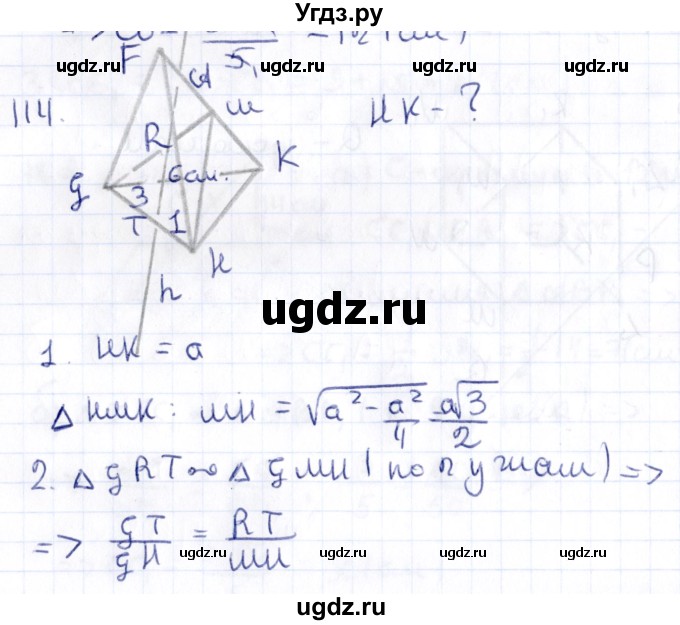 Угдз.ру
ugdz.ru ugdz.ru ugdz.ru ugdz.ru
F
114. м НК - ?
R K
g 6 см.
3
T 1
н
h
ugdz.ru
1. НК = a
△ НМК : МН = √a² - a²/4 = a√3/2
2. △ gRT ∾ △ gМН (по 2 углам) =>
=> gT/gН = RT/МН
ugdz.ru ugdz.ru ugdz.ru ugdz.ru
ugdz.ru